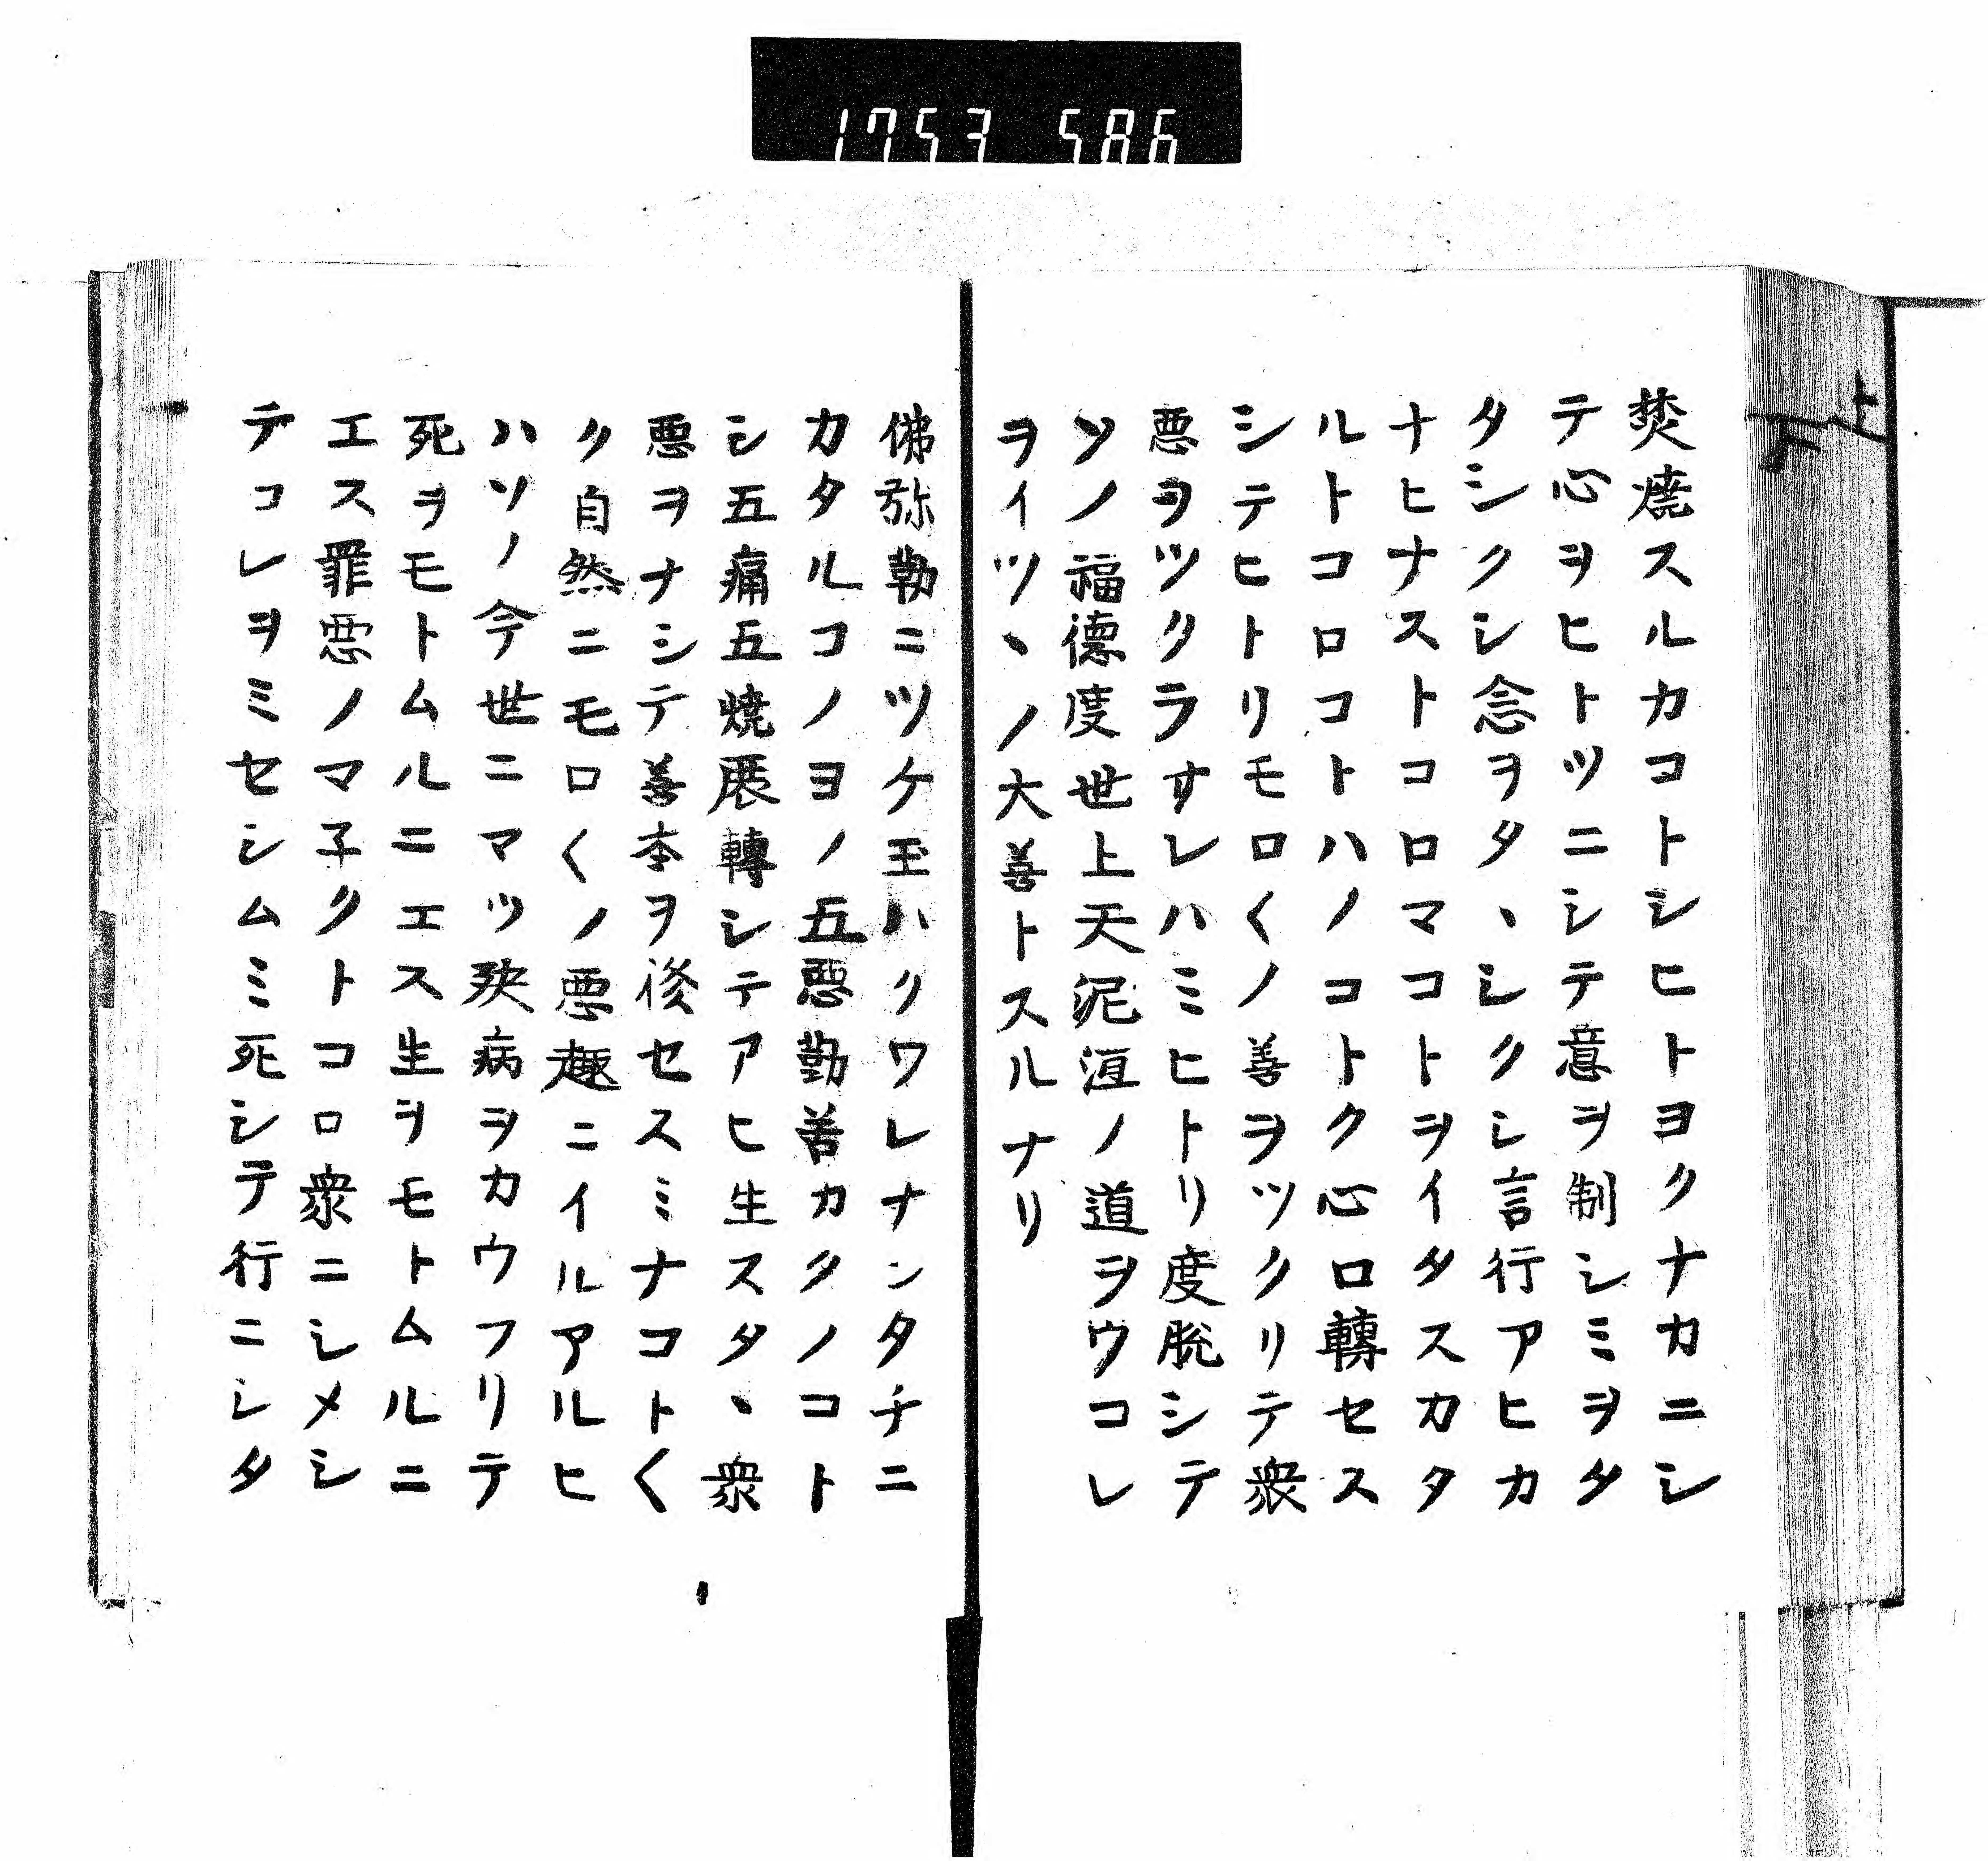 1753 586
焚燒スルカコトシヒトヨクナカニシ
テ心ヲヒトツニシテ意ヲ制シミヲタ
タシクシ念ヲタヽシクシ言行アヒカ
ナヒナストコロマコトヲイタスカタ
ルトコロコトハノコトク心口轉セス
シテヒトリモロ〱ノ善ヲツクリテ衆
悪ヲツクラサレハミヒトリ度脱シテ
ソノ福德度世上天泥洹ノ道ヲウコレ
ヲイツヽノ大善トスルナリ
佛弥勒ニツケ玉ハクワレナンタチニ
カタルコノヨノ五悪勤苦カクノコト
シ五痛五燒展轉シテアヒ生スタヽ衆
悪ヲナシテ善本ヲ後セスミナコト〱
ク自然ニモロ〱ノ悪趣ニイルアルヒ
ハソノ今世ニマツ殃病ヲカウフリテ
死ヲモトムルニエス生ヲモトムルニ
エス罪悪ノマ子クトコロ衆ニシメシ
テコレヲミセシムミ死シテ行ニシタ